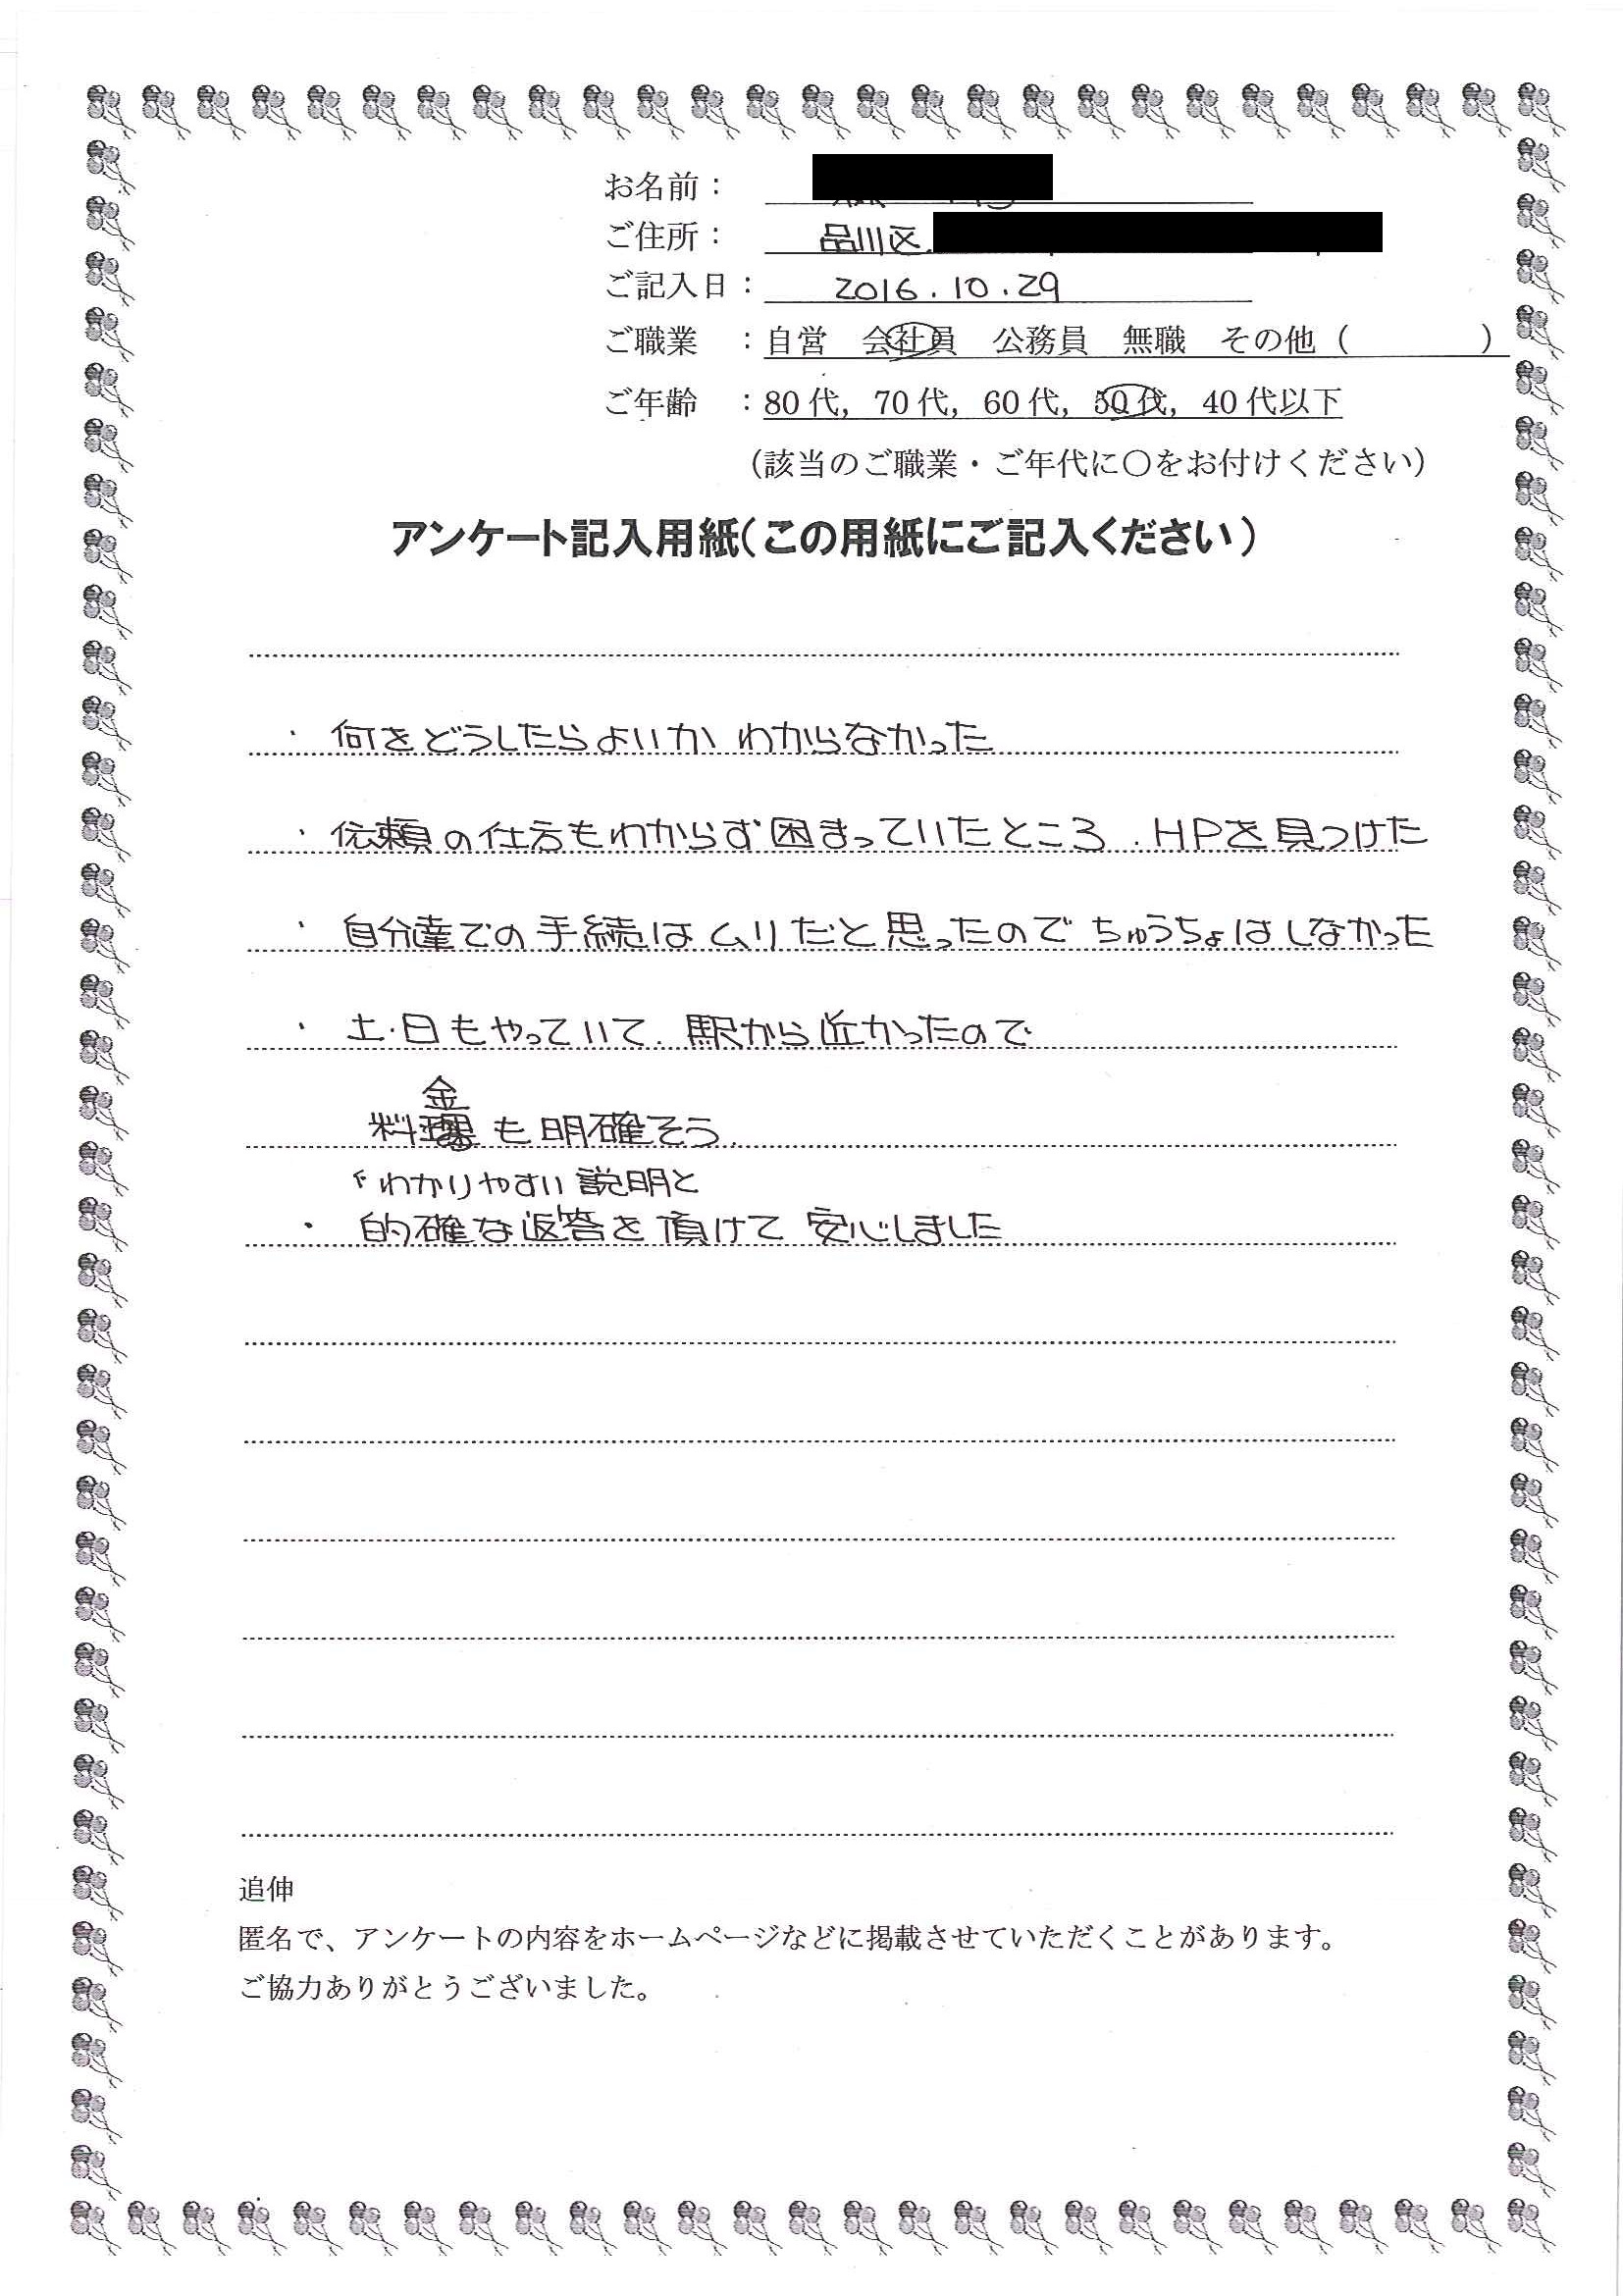 お名前：
ご住所： 品川区
ご記入日： 2016.10.29
ご職業 ：自営 会社員 公務員 無職 その他（ ）
ご年齢 ：80代，70代，60代，50代，40代以下
（該当のご職業・ご年代に○をお付けください）
アンケート記入用紙（この用紙にご記入ください）
・何をどうしたらよいか わからなかった
・依頼の仕方もわからず困まっていたところ．HPを見つけた
・自分達での手続はムリだと思ったのでちゅうちょはしなかった
・土・日もやっていて．駅から近かったので
金
料 も明確そう．
わかりやすい説明と
・的確な返答を頂けて安心しました
追伸
匿名で、アンケートの内容をホームページなどに掲載させていただくことがあります。
ご協力ありがとうございました。